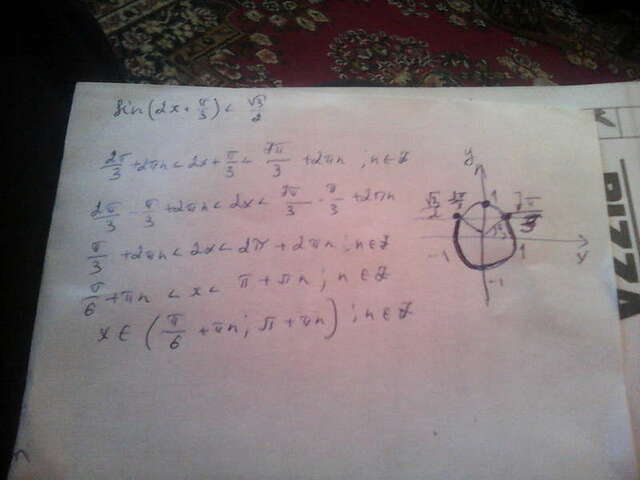 sin(2x + π/3) < √3/2
2π/3 + 2πn < 2x + π/3 < 7π/3 + 2πn ; n ∈ Z
2π/3 - π/3 + 2πn < 2x < 7π/3 - π/3 + 2πn
π/3 + 2πn < 2x < 2π + 2πn ; n ∈ Z
π/6 + πn < x < π + πn ; n ∈ Z
x ∈ (π/6 + πn ; π + πn) ; n ∈ Z
y
√3/2 2π/3 1 7π/3
-1 1 x
-1
PIZZA